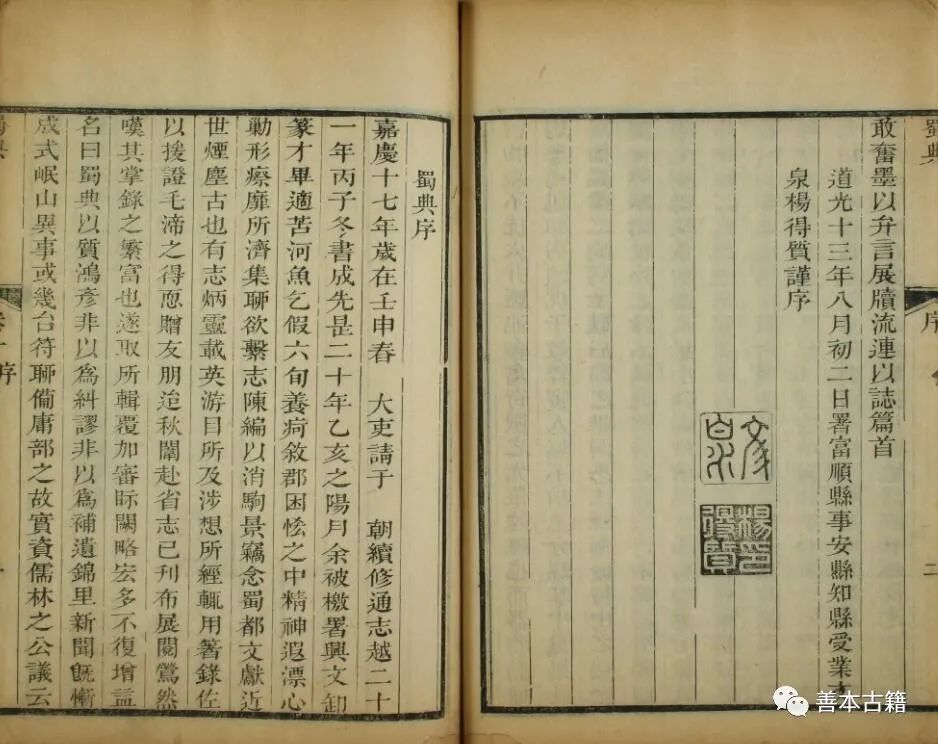 蜀典 序 二
敢奮墨以弁言展牘流連以誌篇首
道光十三年八月初二日署富順縣事安縣知縣受業文
泉楊得質謹序
楊印得質
蜀典序
嘉慶十七年歲在壬申春 大吏請于 朝續修通志越二十
一年丙子冬書成先是二十年乙亥之陽月余被檄署興文卸
篆才畢適苦河魚乞假六旬養疴敘郡困悐之中精神遐漂心
勦形瘵靡所濟集聊欲繫志陳編以消駒景竊念蜀都文獻近
世煙塵古也有志炳靈載英游目所及涉想所經輒用箸錄佐
以援證毛渧之得悉贈友朋迨秋闈赴省志已刊布展閱鶯然
嘆其掌錄之繁富也遂取所輯覆加審眎闕略宏多不復增益
名曰蜀典以質鴻彥非以爲糾謬非以爲補遺錦里新聞旣慚
成式岷山異事或幾台符聊備庸部之故實資儒林之公議云
善本古籍